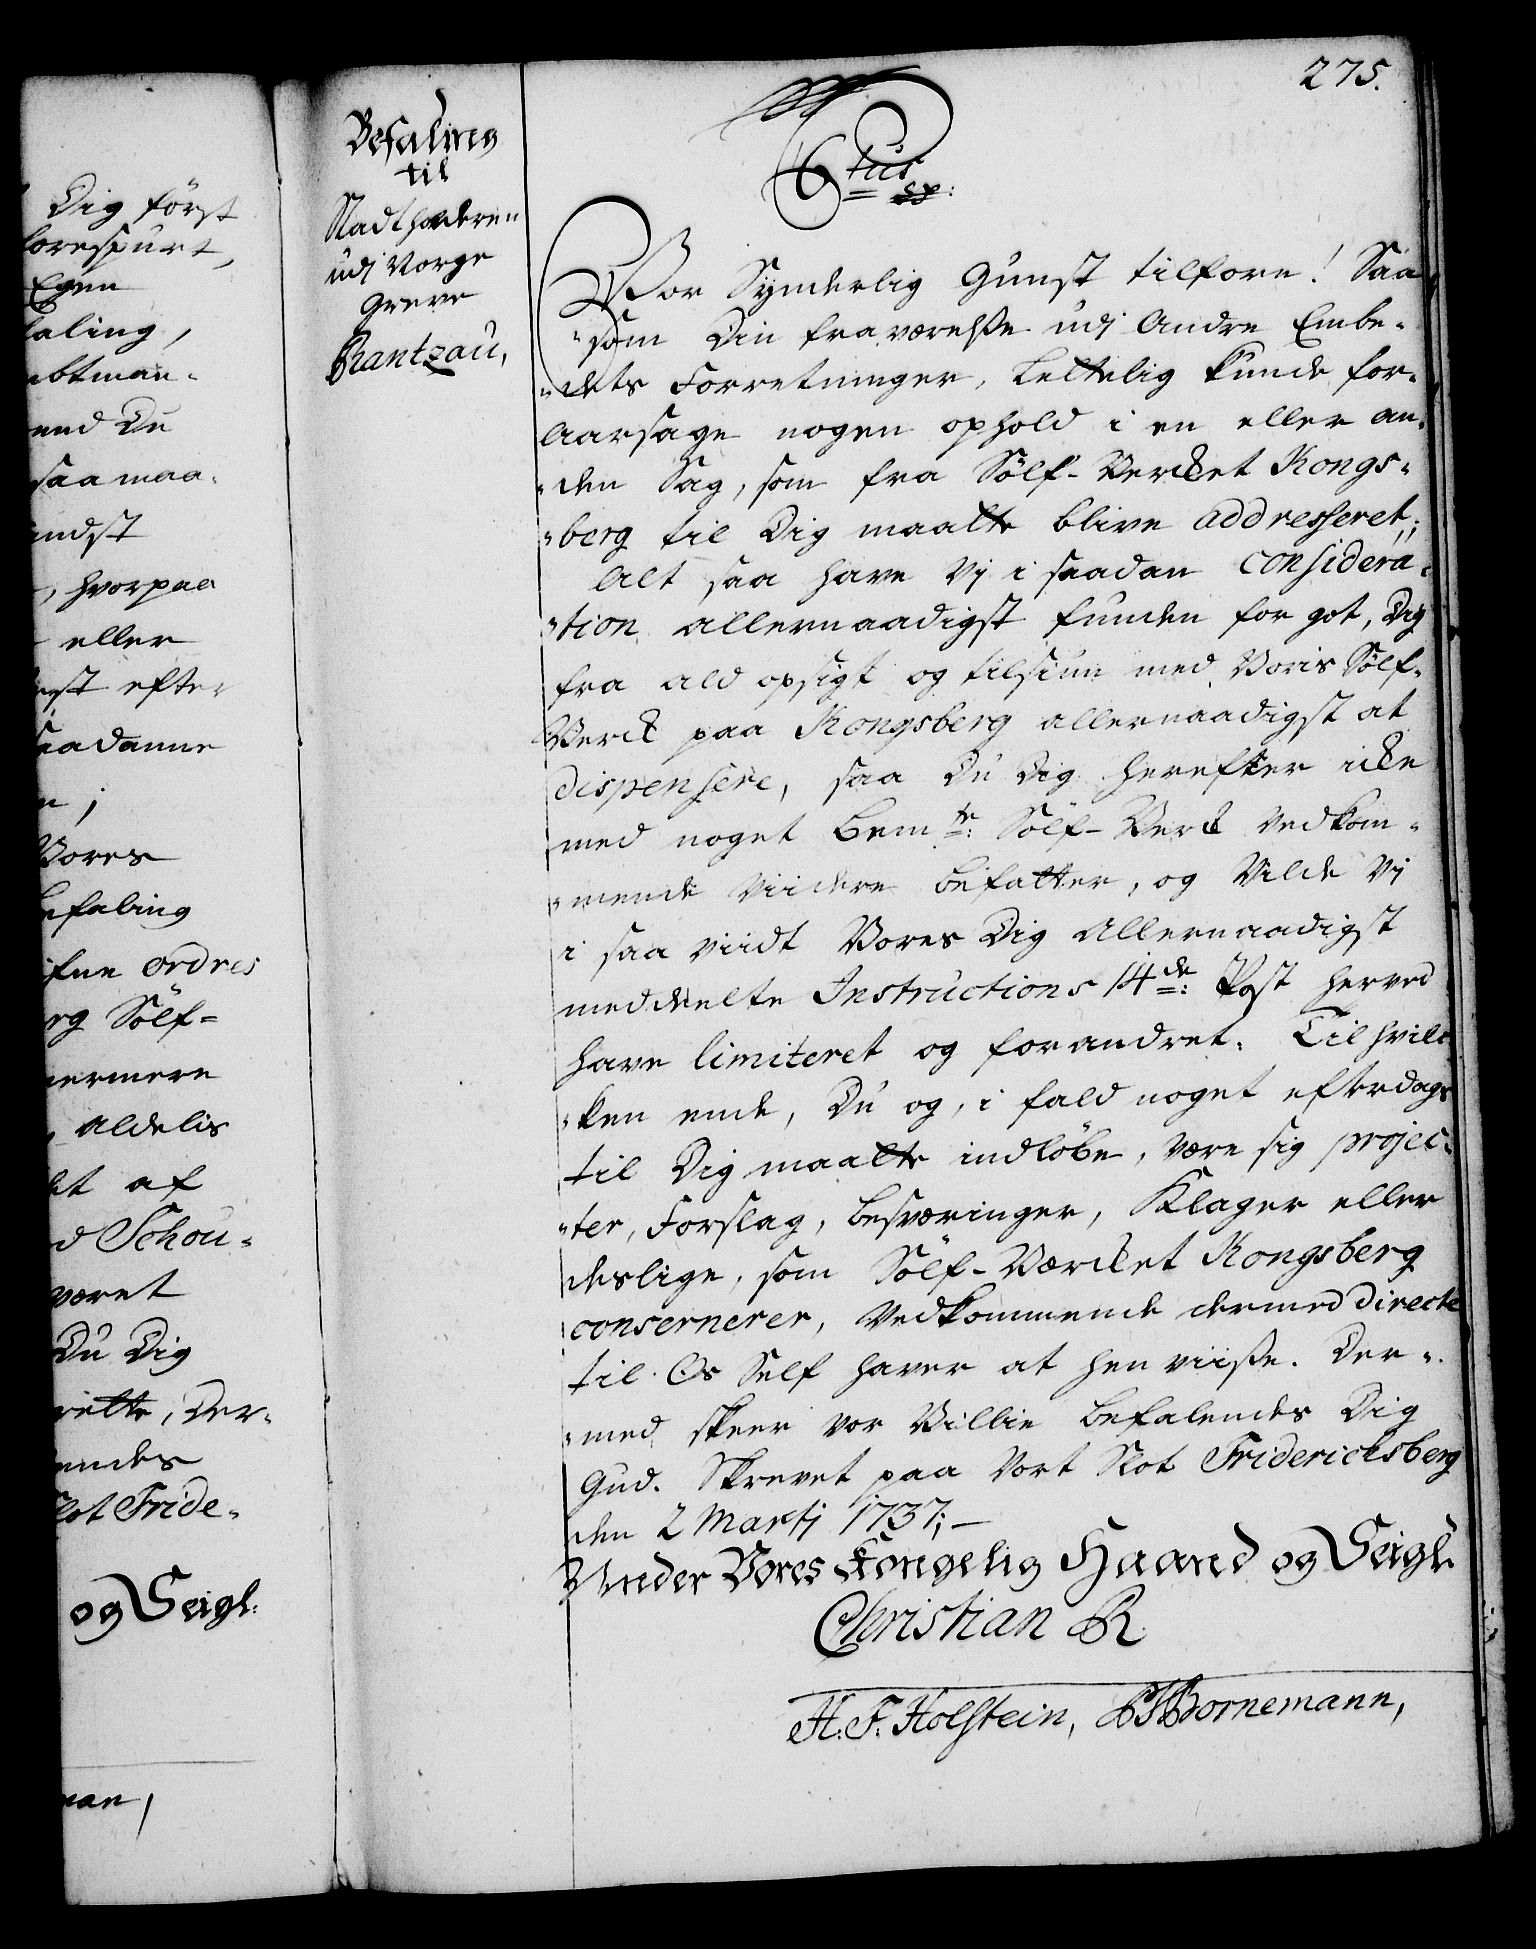 275.
Befaling
til
Stadtholderen
udj Norge
Greve
Rantzau,
Ctus
Vor Synderlig Gunst tilforn! Saa
"som Din fraværelße udj Andre Embe-
"dets Forretninger, Lettelig kunde for-
aarsage nogen ophold i en eller an-
"den Sag, som fra Sölf-Verket Kongs-
"berg til Dig maatte blive addresseret;
Alt saa have Vj i saadan considera-
"tion allernaadigst funden for got, Dig
fra ald opsigt og tilsiun med Voris Sölf-
Verck paa Kongsberg allernaadigst at
dispensere, saa Du Dig herefter icke
med noget bem.te: Sölf-Verck vedkom-
"mende Viidere befatter, og Vilde Vj
i saa viidt Vores Dig Allernaadigst
meddeelte Instructions 14de: Post herved
have limiteret og forandret. Til hvil-
"ken ende, Du og, i fald noget efterdags
til Dig maatte indlöbe, være sig projec-
"ter, Forslag, besværinger, Klager eller
deslige, som Sölf-Værcket Kongsberg
conserner, Vedkommende dermed directe
til Os Self haver at hen viiße. Der-
"med skeer vor Villie Befalendes Dig
Gud. Skrevet paa Vort Slot Fridericksberg
den 2 Martj 1737;—
Under Vores Kongelig Haand og Seigl.
Christian R.
H. F. Holstein, Bornemann,
Dig först
forespurt,
Egen
aling,
mbtman-
end Du
saa maa-
indst
, hvorpaa
eller
efter
saadanne
Vores
befaling
ordres
rg Sölf-
nermere
, aldelis
et af
d Schou-
været
Du Dig
rette, Der-
endes
Slot Fride-
og Seigl:
man,